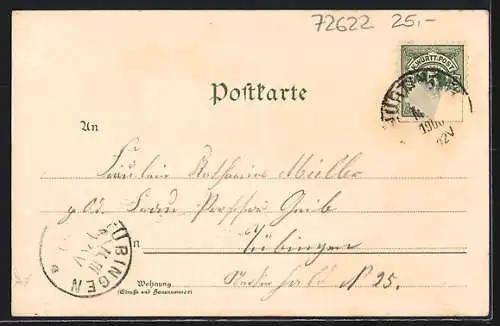 72622 25,-
K. WÜRTT. POST
5
Postkarte
1900
12V
An
Fräulein Katharine Müller
p. Ad. Frau Professor Geib
in Tübingen
N 25.
TÜBINGEN
Wohnung
(Straße und Hausnummer)